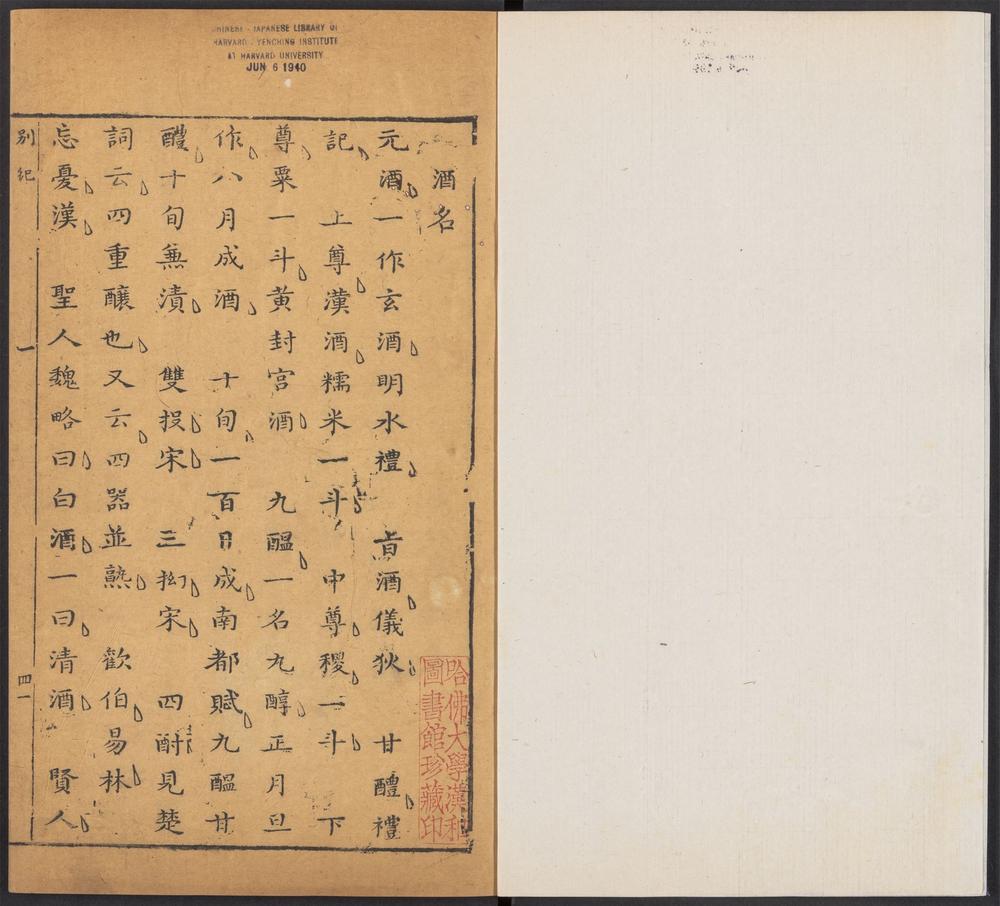 CHINESE - JAPANESE LIBRARY OF
HARVARD - YENCHING INSTITUTE
AT HARVARD UNIVERSITY
JUN 6 1940
酒名
元酒一作玄酒明水禮 旨酒儀狄 甘醴禮
記 上尊漢酒糯米一斗 中尊稷一斗 下
尊粟一斗黃封宮酒 九醞一名九醇正月旦
作八月成酒 十旬一百日成南都賦九醞甘
醴十旬無漬 雙投宋 三拗宋 四酎見楚
詞云四重釀也又云四器並熟 歡伯易林
忘憂漢 聖人魏略曰白酒一曰清酒 賢人
別紀
一
四一
哈佛大學漢和
圖書館珍藏印